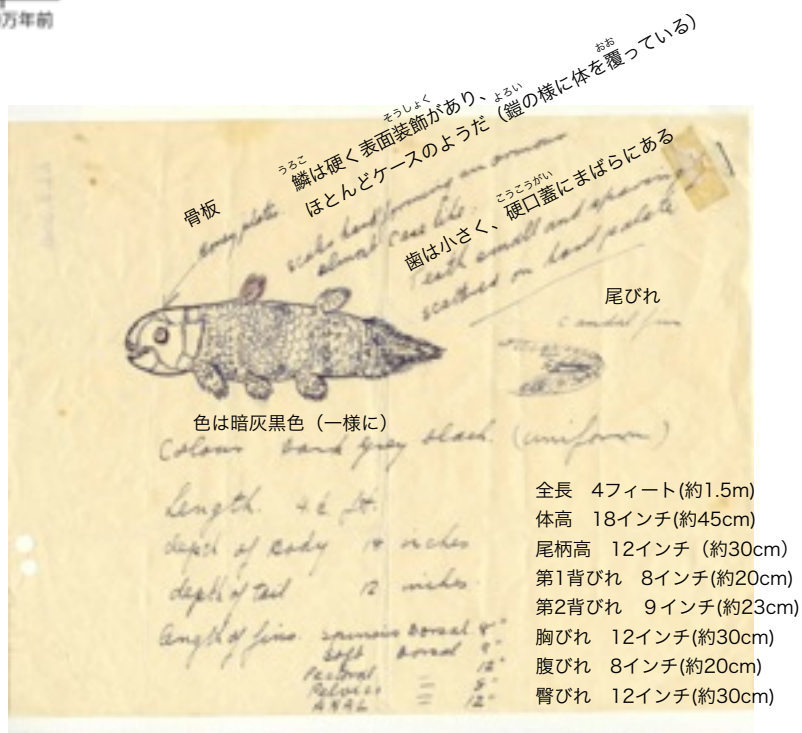 万年前
鱗は硬く表面装飾があり、
うろこ
そうしょく
ほとんどケースのようだ（鎧の様に体を覆っている）
よろい
おお
骨板
boney plates
scales hard forming an armour
almost case like.
歯は小さく、硬口蓋にまばらにある
こうこうがい
Teeth small and
scattered on hard palate
尾びれ
caudal fin
色は暗灰黒色（一様に）
Colour dark grey black. (uniform)
Length. 4½ ft.
depth of body 18 inches
depth of tail 12 inches.
length of fins. spinous Dorsal 8"
Soft Dorsal 9"
Pectoral 12"
Pelvics = 8"
ANAL = 12"
全長　4フィート(約1.5m)
体高　18インチ(約45cm)
尾柄高　12インチ（約30cm）
第1背びれ　8インチ(約20cm)
第2背びれ　９インチ(約23cm)
胸びれ　12インチ(約30cm)
腹びれ　8インチ(約20cm)
臀びれ　12インチ(約30cm)